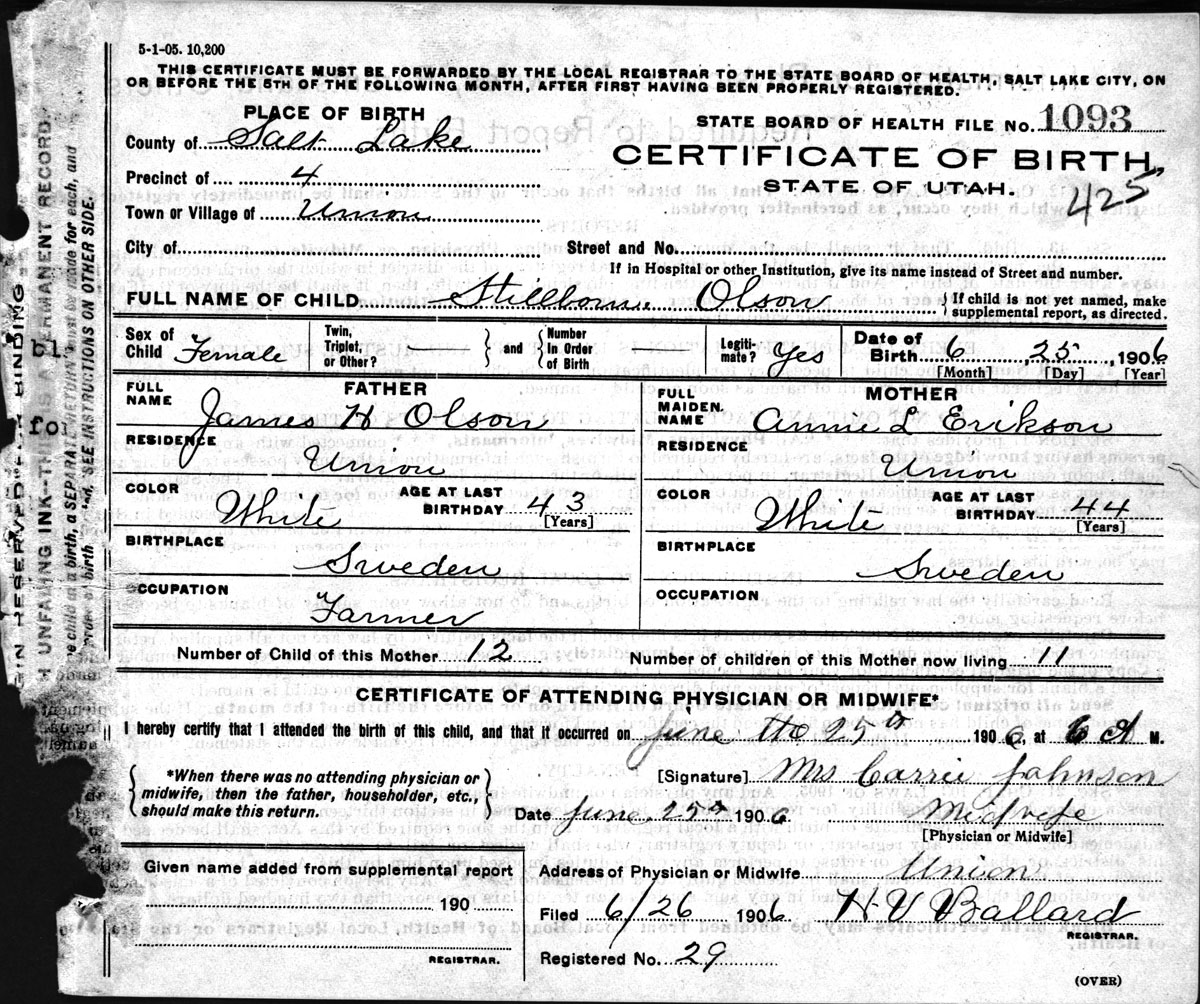 5-1-05. 10,200
THIS CERTIFICATE MUST BE FORWARDED BY THE LOCAL REGISTRAR TO THE STATE BOARD OF HEALTH, SALT LAKE CITY, ON
OR BEFORE THE 5TH OF THE FOLLOWING MONTH, AFTER FIRST HAVING BEEN PROPERLY REGISTERED.
PLACE OF BIRTH
STATE BOARD OF HEALTH FILE No. 1093
County of Salt Lake
CERTIFICATE OF BIRTH,
Precinct of 4
STATE OF UTAH.
425
Town or Village of Union
City of Street and No.
If in Hospital or other Institution, give its name instead of Street and number.
FULL NAME OF CHILD Stillborn Olson { If child is not yet named, make
supplemental report, as directed.
Sex of Child Female Twin, Triplet, or Other? } and { Number In Order of Birth Legiti- mate? Yes Date of Birth 6 25, 1906
[Month] [Day] [Year]
FATHER
FULL NAME James H Olson
RESIDENCE Union
COLOR White AGE AT LAST BIRTHDAY 43
[Years]
BIRTHPLACE Sweden
OCCUPATION Farmer
MOTHER
FULL MAIDEN NAME Annie L Erikson
RESIDENCE Union
COLOR White AGE AT LAST BIRTHDAY 44
[Years]
BIRTHPLACE Sweden
OCCUPATION
Number of Child of this Mother 12 Number of children of this Mother now living 11
CERTIFICATE OF ATTENDING PHYSICIAN OR MIDWIFE*
I hereby certify that I attended the birth of this child, and that it occurred on June the 25th 1906, at 6 A M.
{ *When there was no attending physician or
midwife, then the father, householder, etc.,
should make this return. }
[Signature] Mrs Carrie Johnson
Date June 25th 1906 Midwife
[Physician or Midwife]
Given name added from supplemental report
190
REGISTRAR.
Address of Physician or Midwife Union
Filed 6/26 1906 H V Ballard
REGISTRAR.
Registered No. 29
(OVER)